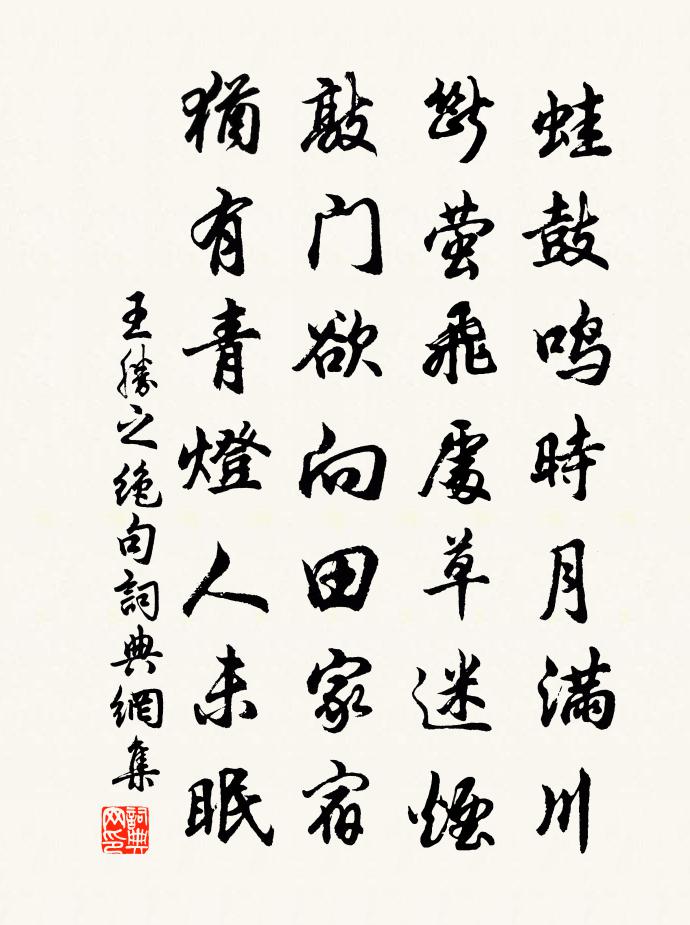 蛙鼓鳴時月滿川
斷螢飛處草迷煙
敲門欲向田家宿
猶有青燈人未眠
王勝之絕句詞典網集
詞典網印